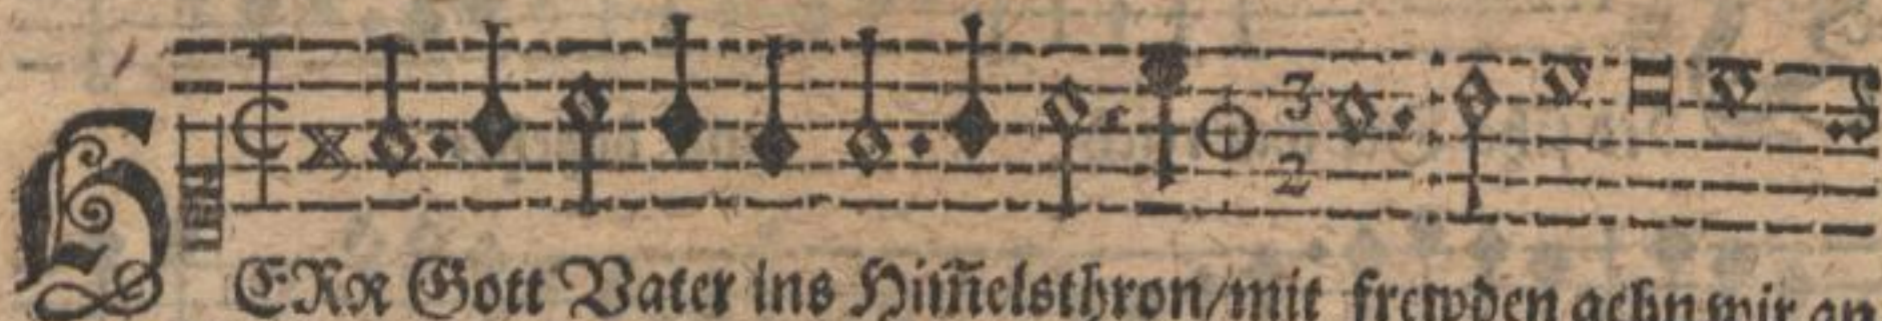 3
2
HERR Gott Vater ins Him̃elsthron/mit frewden gehn wir an